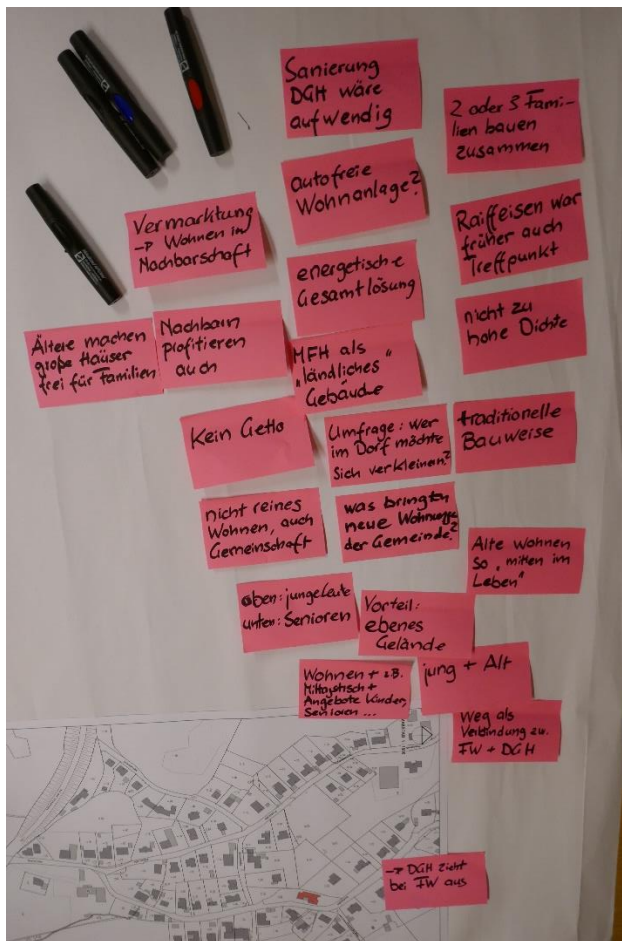 Sanierung
DGH wäre
aufwendig
2 oder 3 Fami-
lien bauen
zusammen
autofreie
Wohnanlage?
Vermarktung
→ Wohnen in
Nachbarschaft
Raiffeisen war
früher auch
Treffpunkt
energetische
Gesamtlösung
nicht zu
hohe Dichte
Ältere machen
große Häuser
frei für Familien
Nachbarn
profitieren
auch
MFH als
"ländliches"
Gebäude
Kein Getto
Umfrage: Wer
im Dorf möchte
sich verkleinern?
traditionelle
Bauweise
nicht reines
Wohnen, auch
Gemeinschaft
was bringen
neue Wohnungen
der Gemeinde?
Alte wohnen
so "mitten im
Leben"
oben: junge Leute
unten: Senioren
Vorteil:
ebenes
Gelände
Wohnen + z.B.
Mittagstisch +
Angebote Kinder,
Senioren ...
jung + Alt
Weg als
Verbindung zu.
FW + DGH
→ DGH zieht
bei FW aus